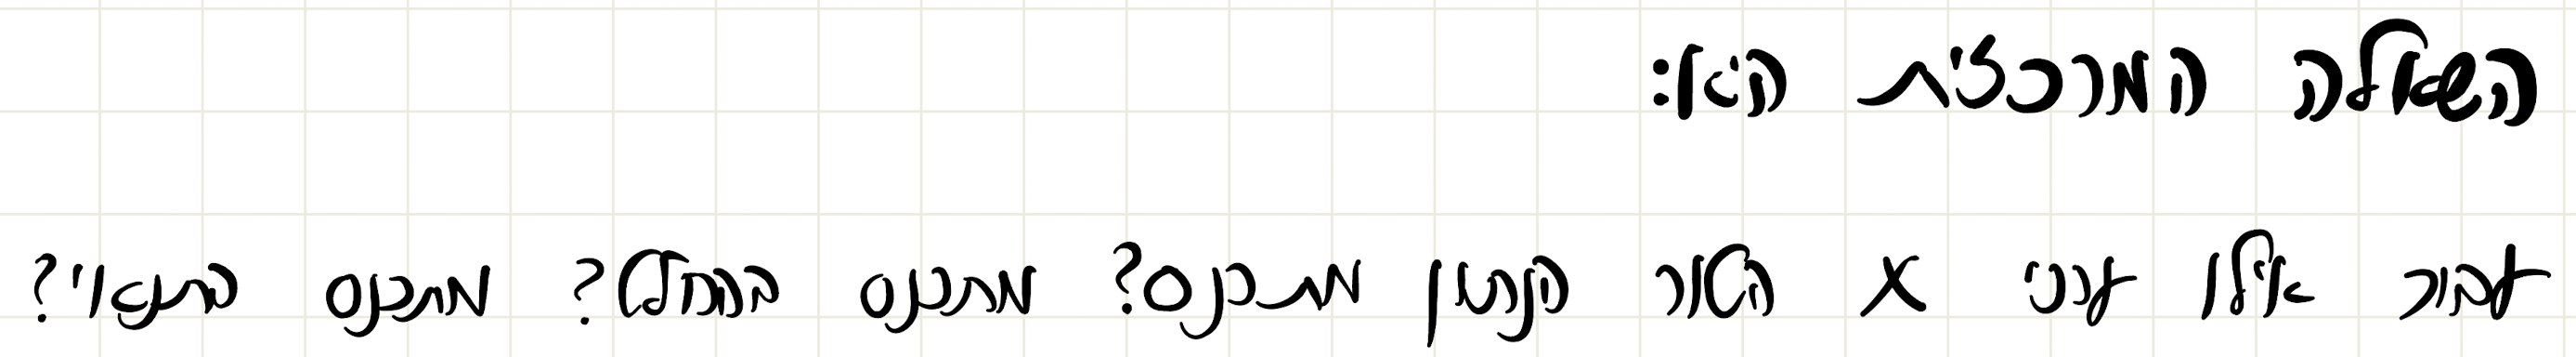 השאלה המרכזית היא:
עבור אילו ערכי x הטור הנתון מתכנס? מתכנס בהחלט? מתכנס בתנאי?